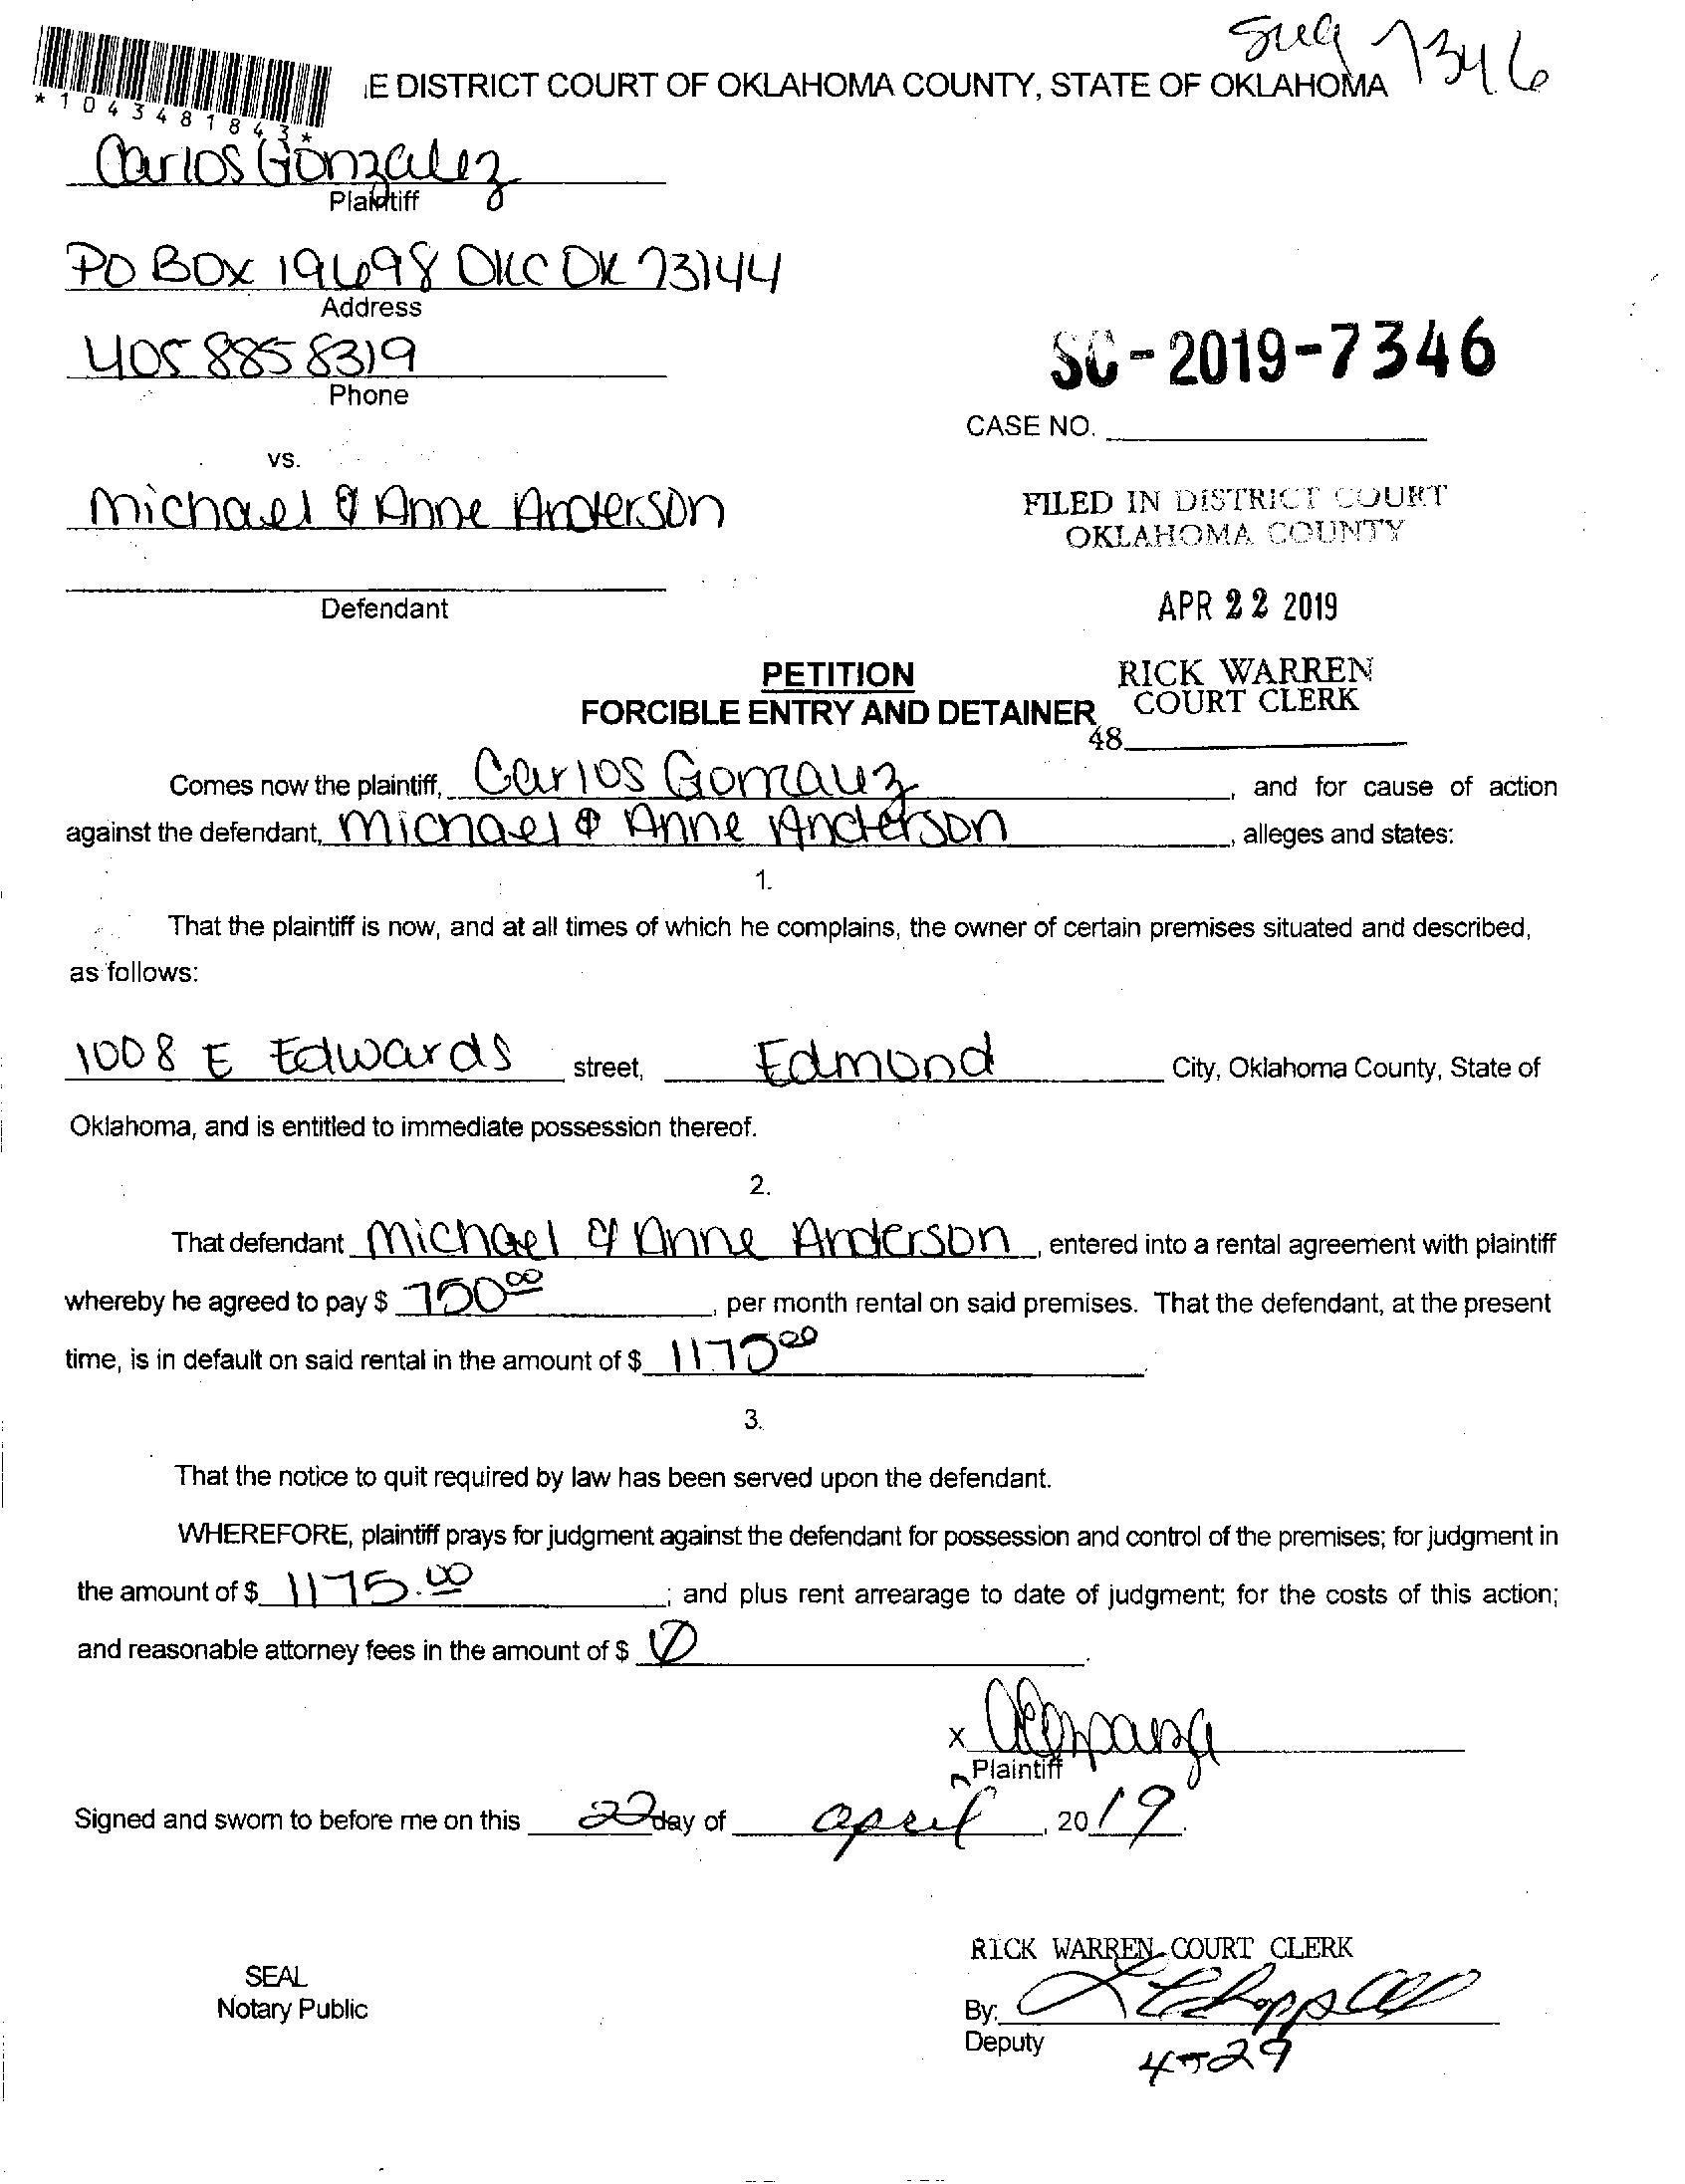 7346
E DISTRICT COURT OF OKLAHOMA COUNTY, STATE OF OKLAHOMA
*1043481843*
Carlos Gonzalez
Plaintiff
PO BOX 19698 OKC OK 73144
Address
405 885 8319
Phone
SC-2019-7346
CASE NO.
vs.
Michael & Anne Anderson
FILED IN DISTRICT COURT
OKLAHOMA COUNTY
Defendant
APR 22 2019
PETITION
RICK WARREN
FORCIBLE ENTRY AND DETAINER
COURT CLERK
48
Comes now the plaintiff, Carlos Gonzalez, and for cause of action
against the defendant, Michael & Anne Anderson, alleges and states:
1.
That the plaintiff is now, and at all times of which he complains, the owner of certain premises situated and described,
as follows:
1008 E Edwards street, Edmond City, Oklahoma County, State of
Oklahoma, and is entitled to immediate possession thereof.
2.
That defendant Michael & Anne Anderson, entered into a rental agreement with plaintiff
whereby he agreed to pay $ 750 00, per month rental on said premises. That the defendant, at the present
time, is in default on said rental in the amount of $ 1175 00.
3.
That the notice to quit required by law has been served upon the defendant.
WHEREFORE, plaintiff prays for judgment against the defendant for possession and control of the premises; for judgment in
the amount of $ 1175.00; and plus rent arrearage to date of judgment; for the costs of this action;
and reasonable attorney fees in the amount of $ Ø.
x
Plaintiff
Signed and sworn to before me on this 22 day of april, 2019.
RICK WARREN COURT CLERK
SEAL
Notary Public
By:
Deputy
4-29